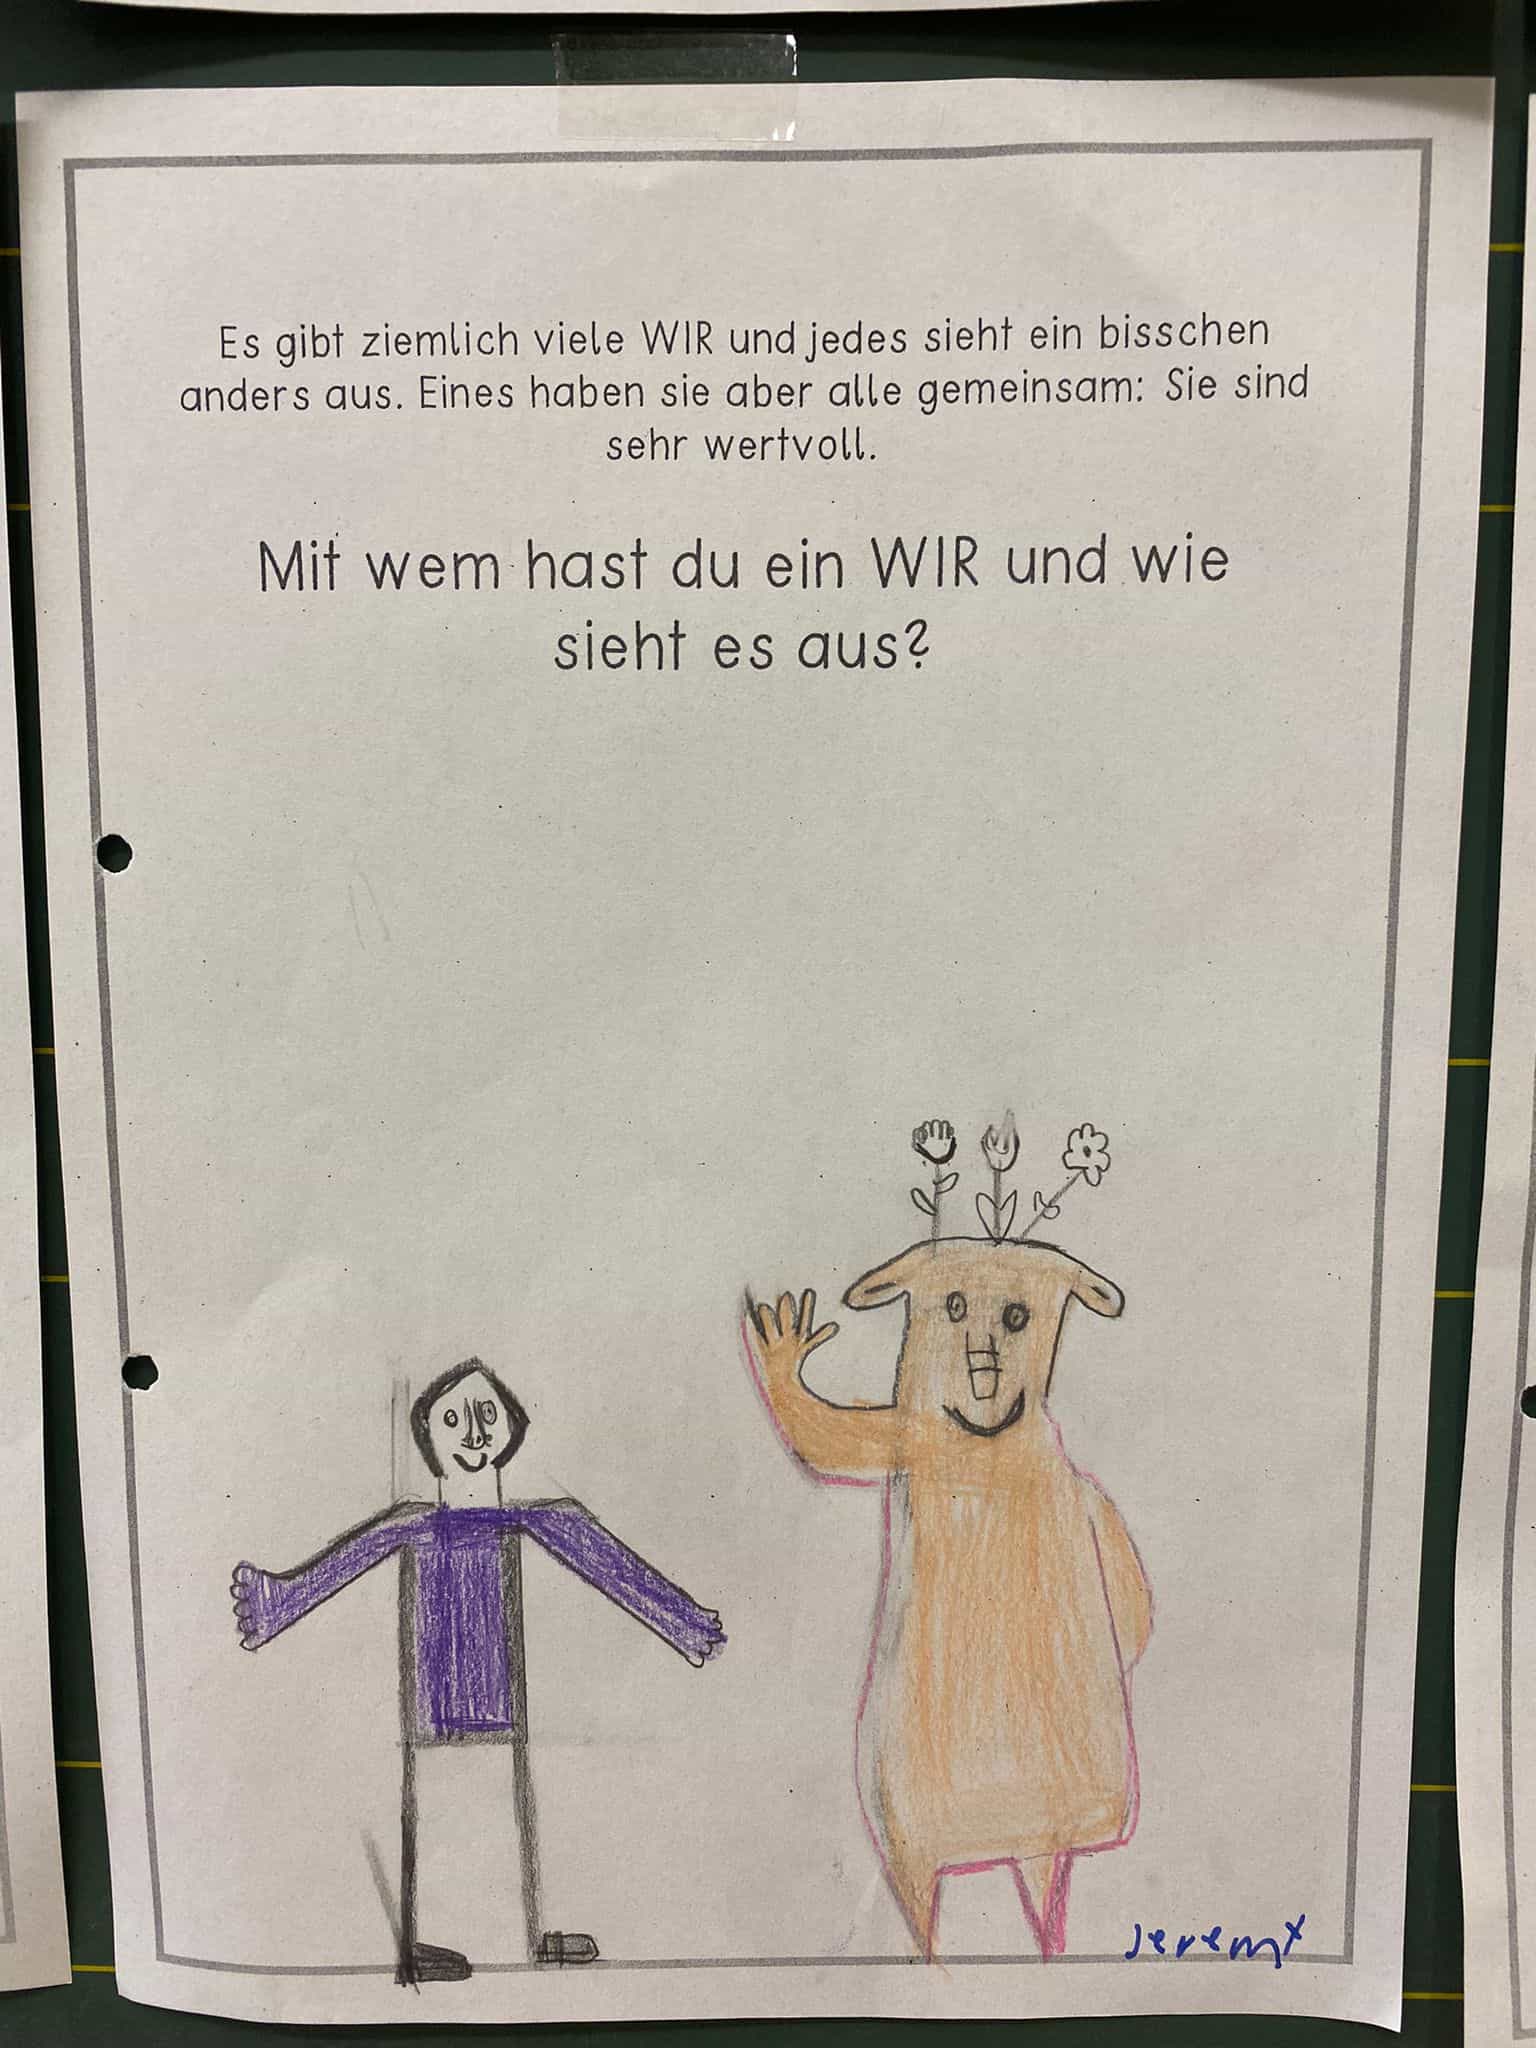 Es gibt ziemlich viele WIR und jedes sieht ein bisschen
anders aus. Eines haben sie aber alle gemeinsam: Sie sind
sehr wertvoll.
Mit wem hast du ein WIR und wie
sieht es aus?
Jeremy